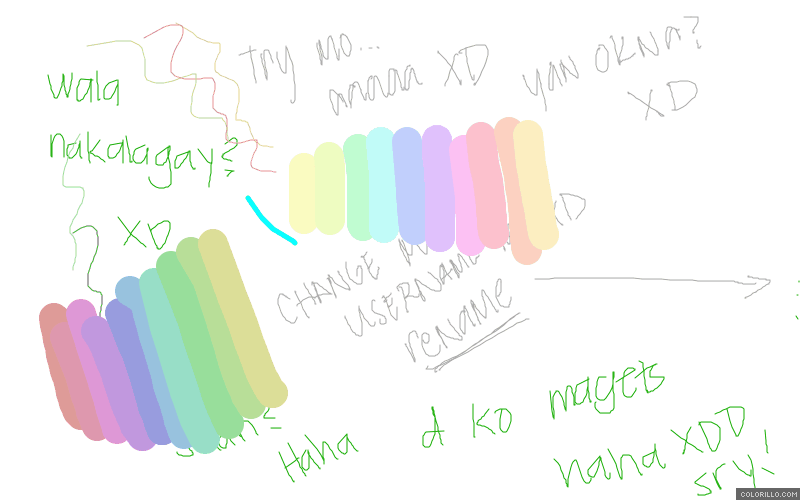 Try mo...
anaaa XD
yan okna?
XD
Wala
nakalagay?
XD
CHANGE
USERNAME
XD
rename
Haha
d ko magets
haha XDD
sry!
COLORILLO.COM